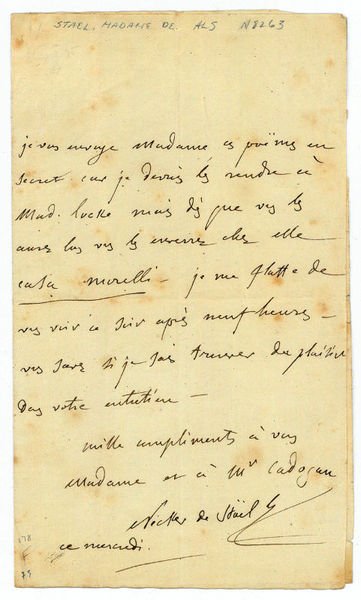 STAEL, MADAME DE. ALS N8263
je vous envoye Madame ces poëmes en
secret car je devrois les rendre à
Mad. Locke mais dès que vous les
aurez lus vous les enverrez chez elle
casa morelli – je me flatte de
vous voir ce soir après neuf heures –
vous savez si je sais trouver du plaisir
dans votre entretien –
mille compliments à vous
Madame et à Mr Cadogan
Necker de Staël H
ce mercredi.
178
73